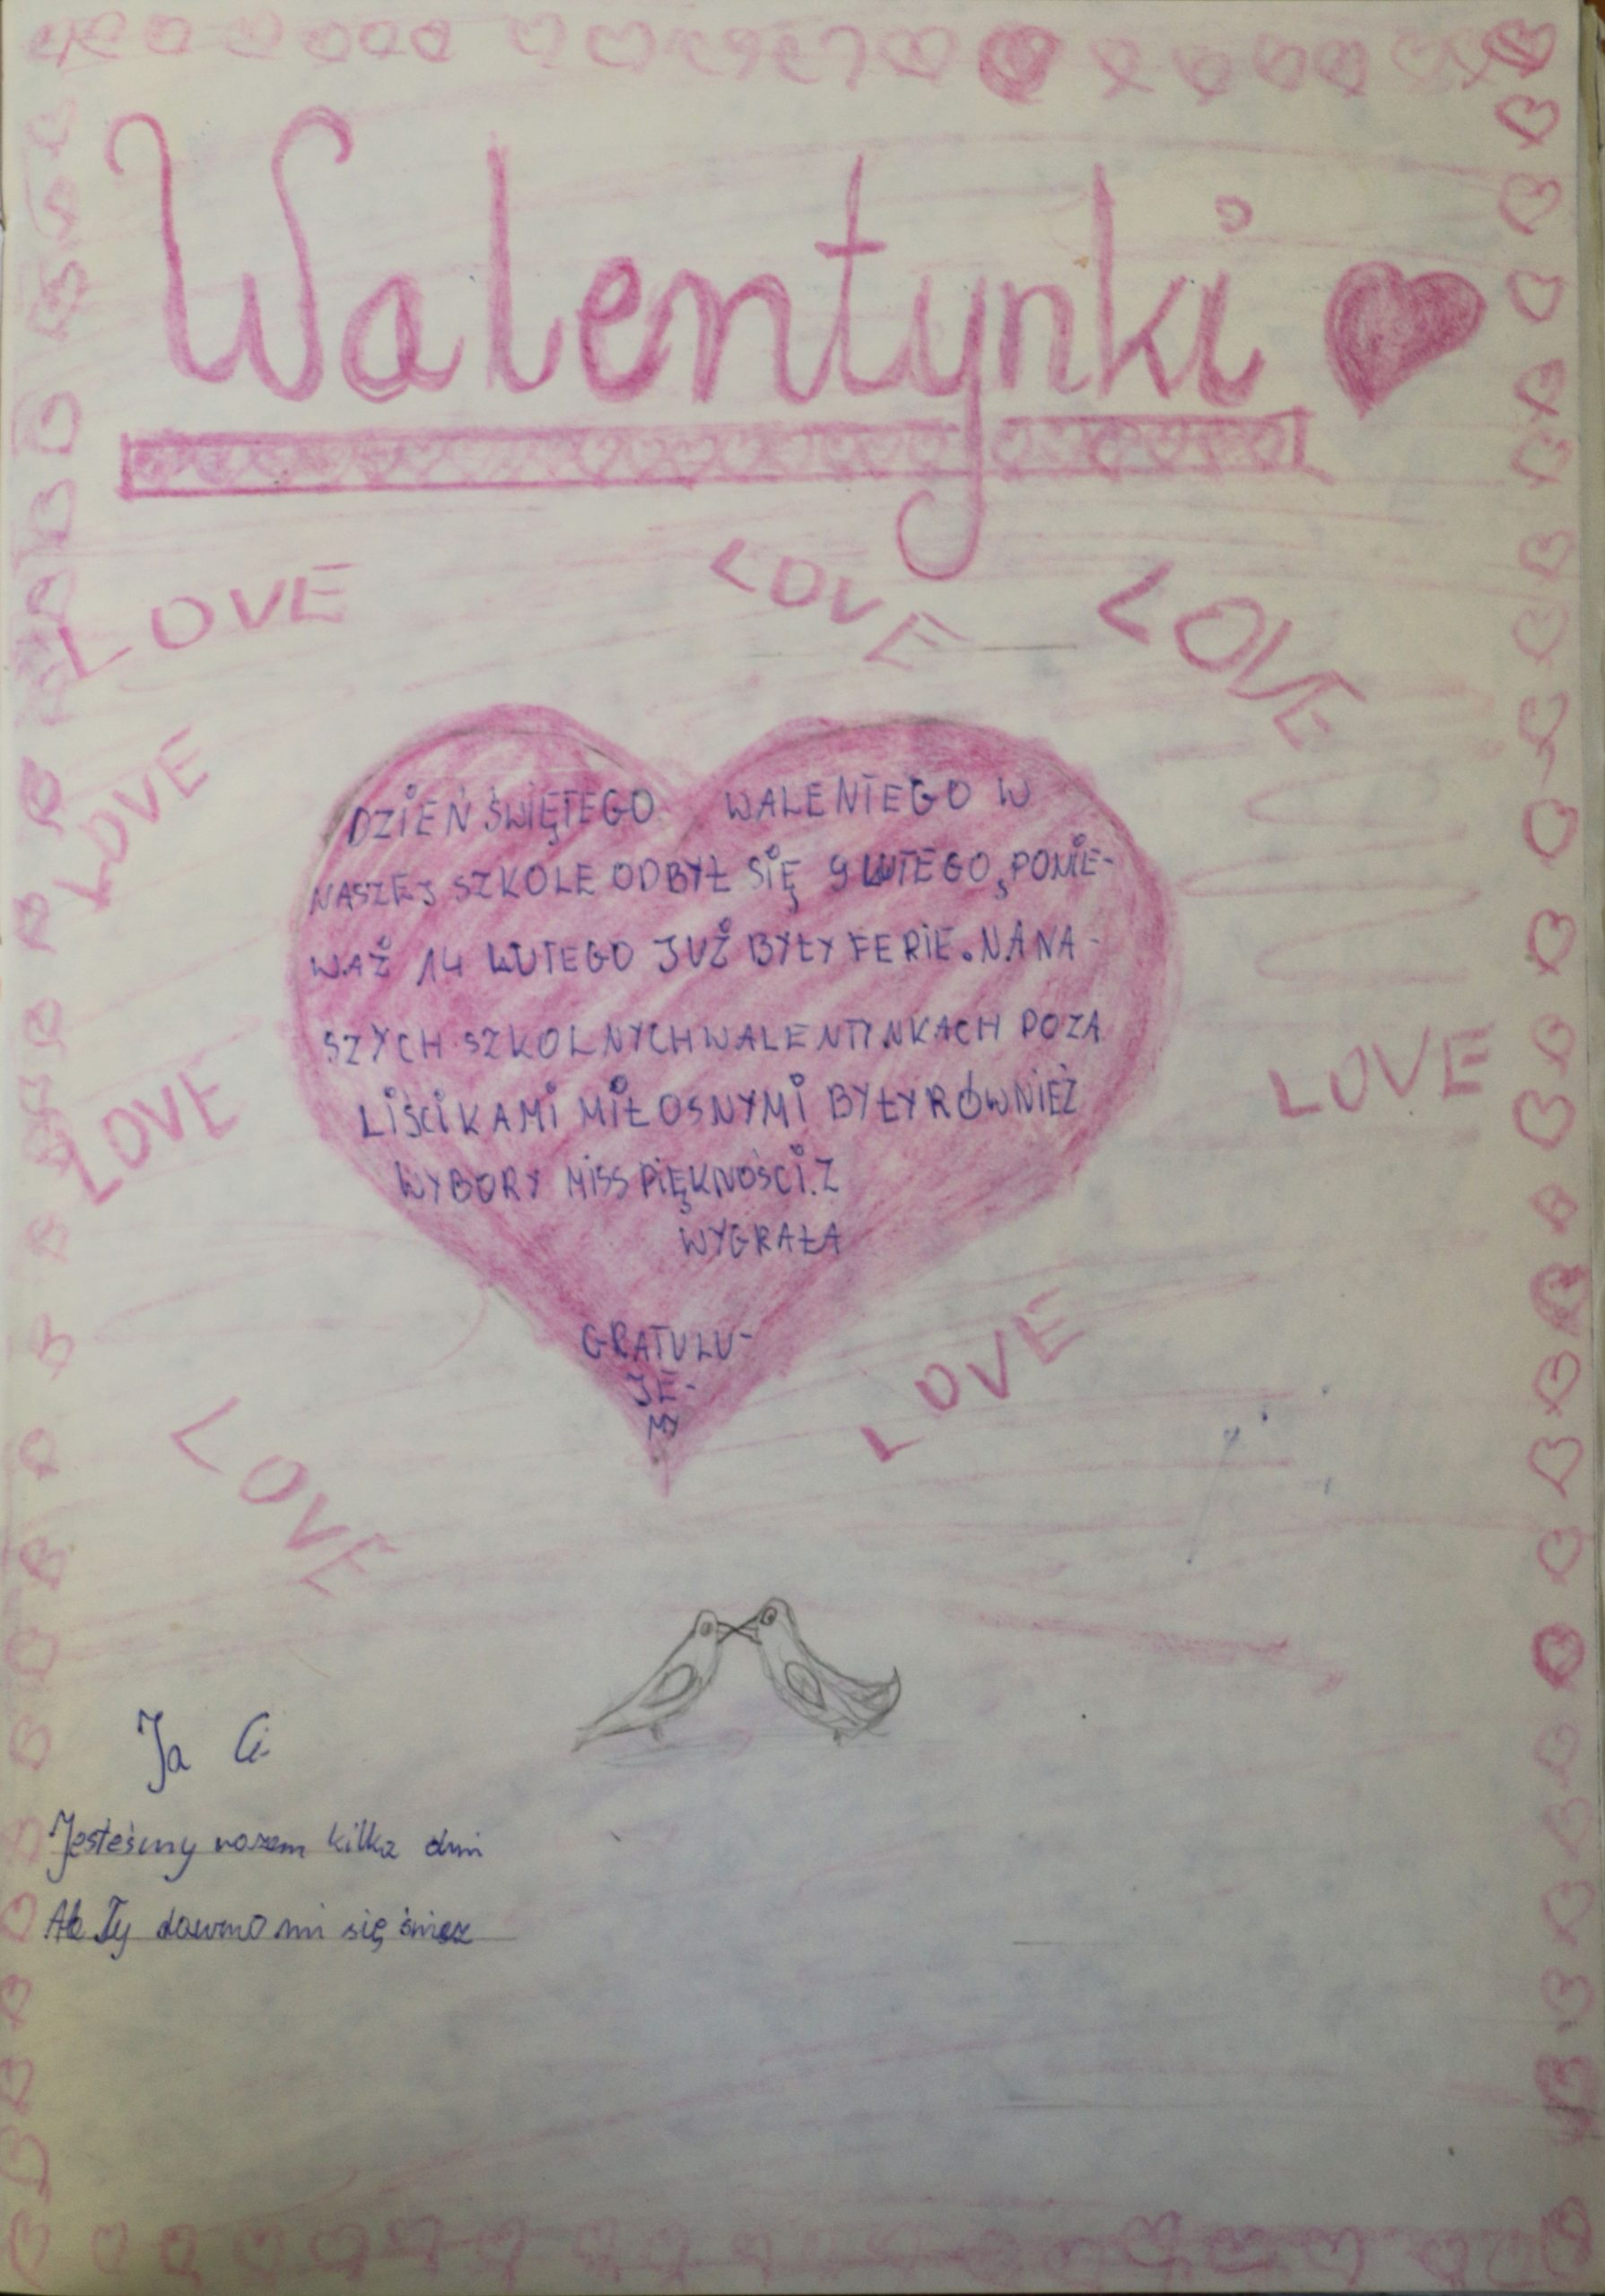 Walentynki
LOVE
LOVE
LOVE
LOVE
DZIEŃ ŚWIĘTEGO WALENIEGO W
NASZEJ SZKOLE ODBYŁ SIĘ 9 LUTEGO, PONIE-
WAŻ 14 LUTEGO JUŻ BYŁY FERIE. NA NA-
SZYCH SZKOLNYCH WALENTYNKACH POZA
LIŚCIKAMI MIŁOSNYMI BYŁY RÓWNIEŻ
WYBORY MISS PIĘKNOŚCI. Z
WYGRAŁA
GRATULU-
JE-
MY
LOVE
LOVE
LOVE
LOVE
Ja Ci
Jesteśmy razem kilka dni
Ale Ty dawno mi się śnisz